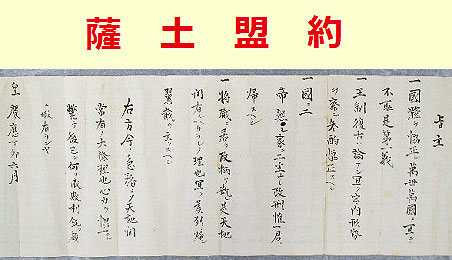 薩土盟約
旨主
一國體ヲ協正シ萬世萬國ニ亘リテ
不恥是第一義
一王制復古ハ論ナシ宜ク宇内形勢
ヲ察シ参酌協正スヘシ
一國ニ二
帝ナシ家ニ二主ナシ政刑惟一君ニ
帰スヘシ
一將職ニ居テ政柄ヲ執ル是天地
間有ヘカラサルノ理也宜ク侯列ニ帰
翼戴ヲ主トスヘシ
右方今ノ急務ニシテ天地間
常有ノ大條理也心力ヲ協一ニシテ
斃テ後已ン何ソ成敗利鈍ヲ顧
ニ暇有ランヤ
皇慶應丁卯六月